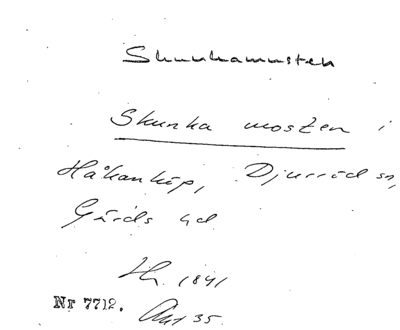 Skunkamosten
Skunka mosten i
Håkanköp, Djurröd sn,
Gärds hd
Hz. 1841
Nr 7712. Akt 35.